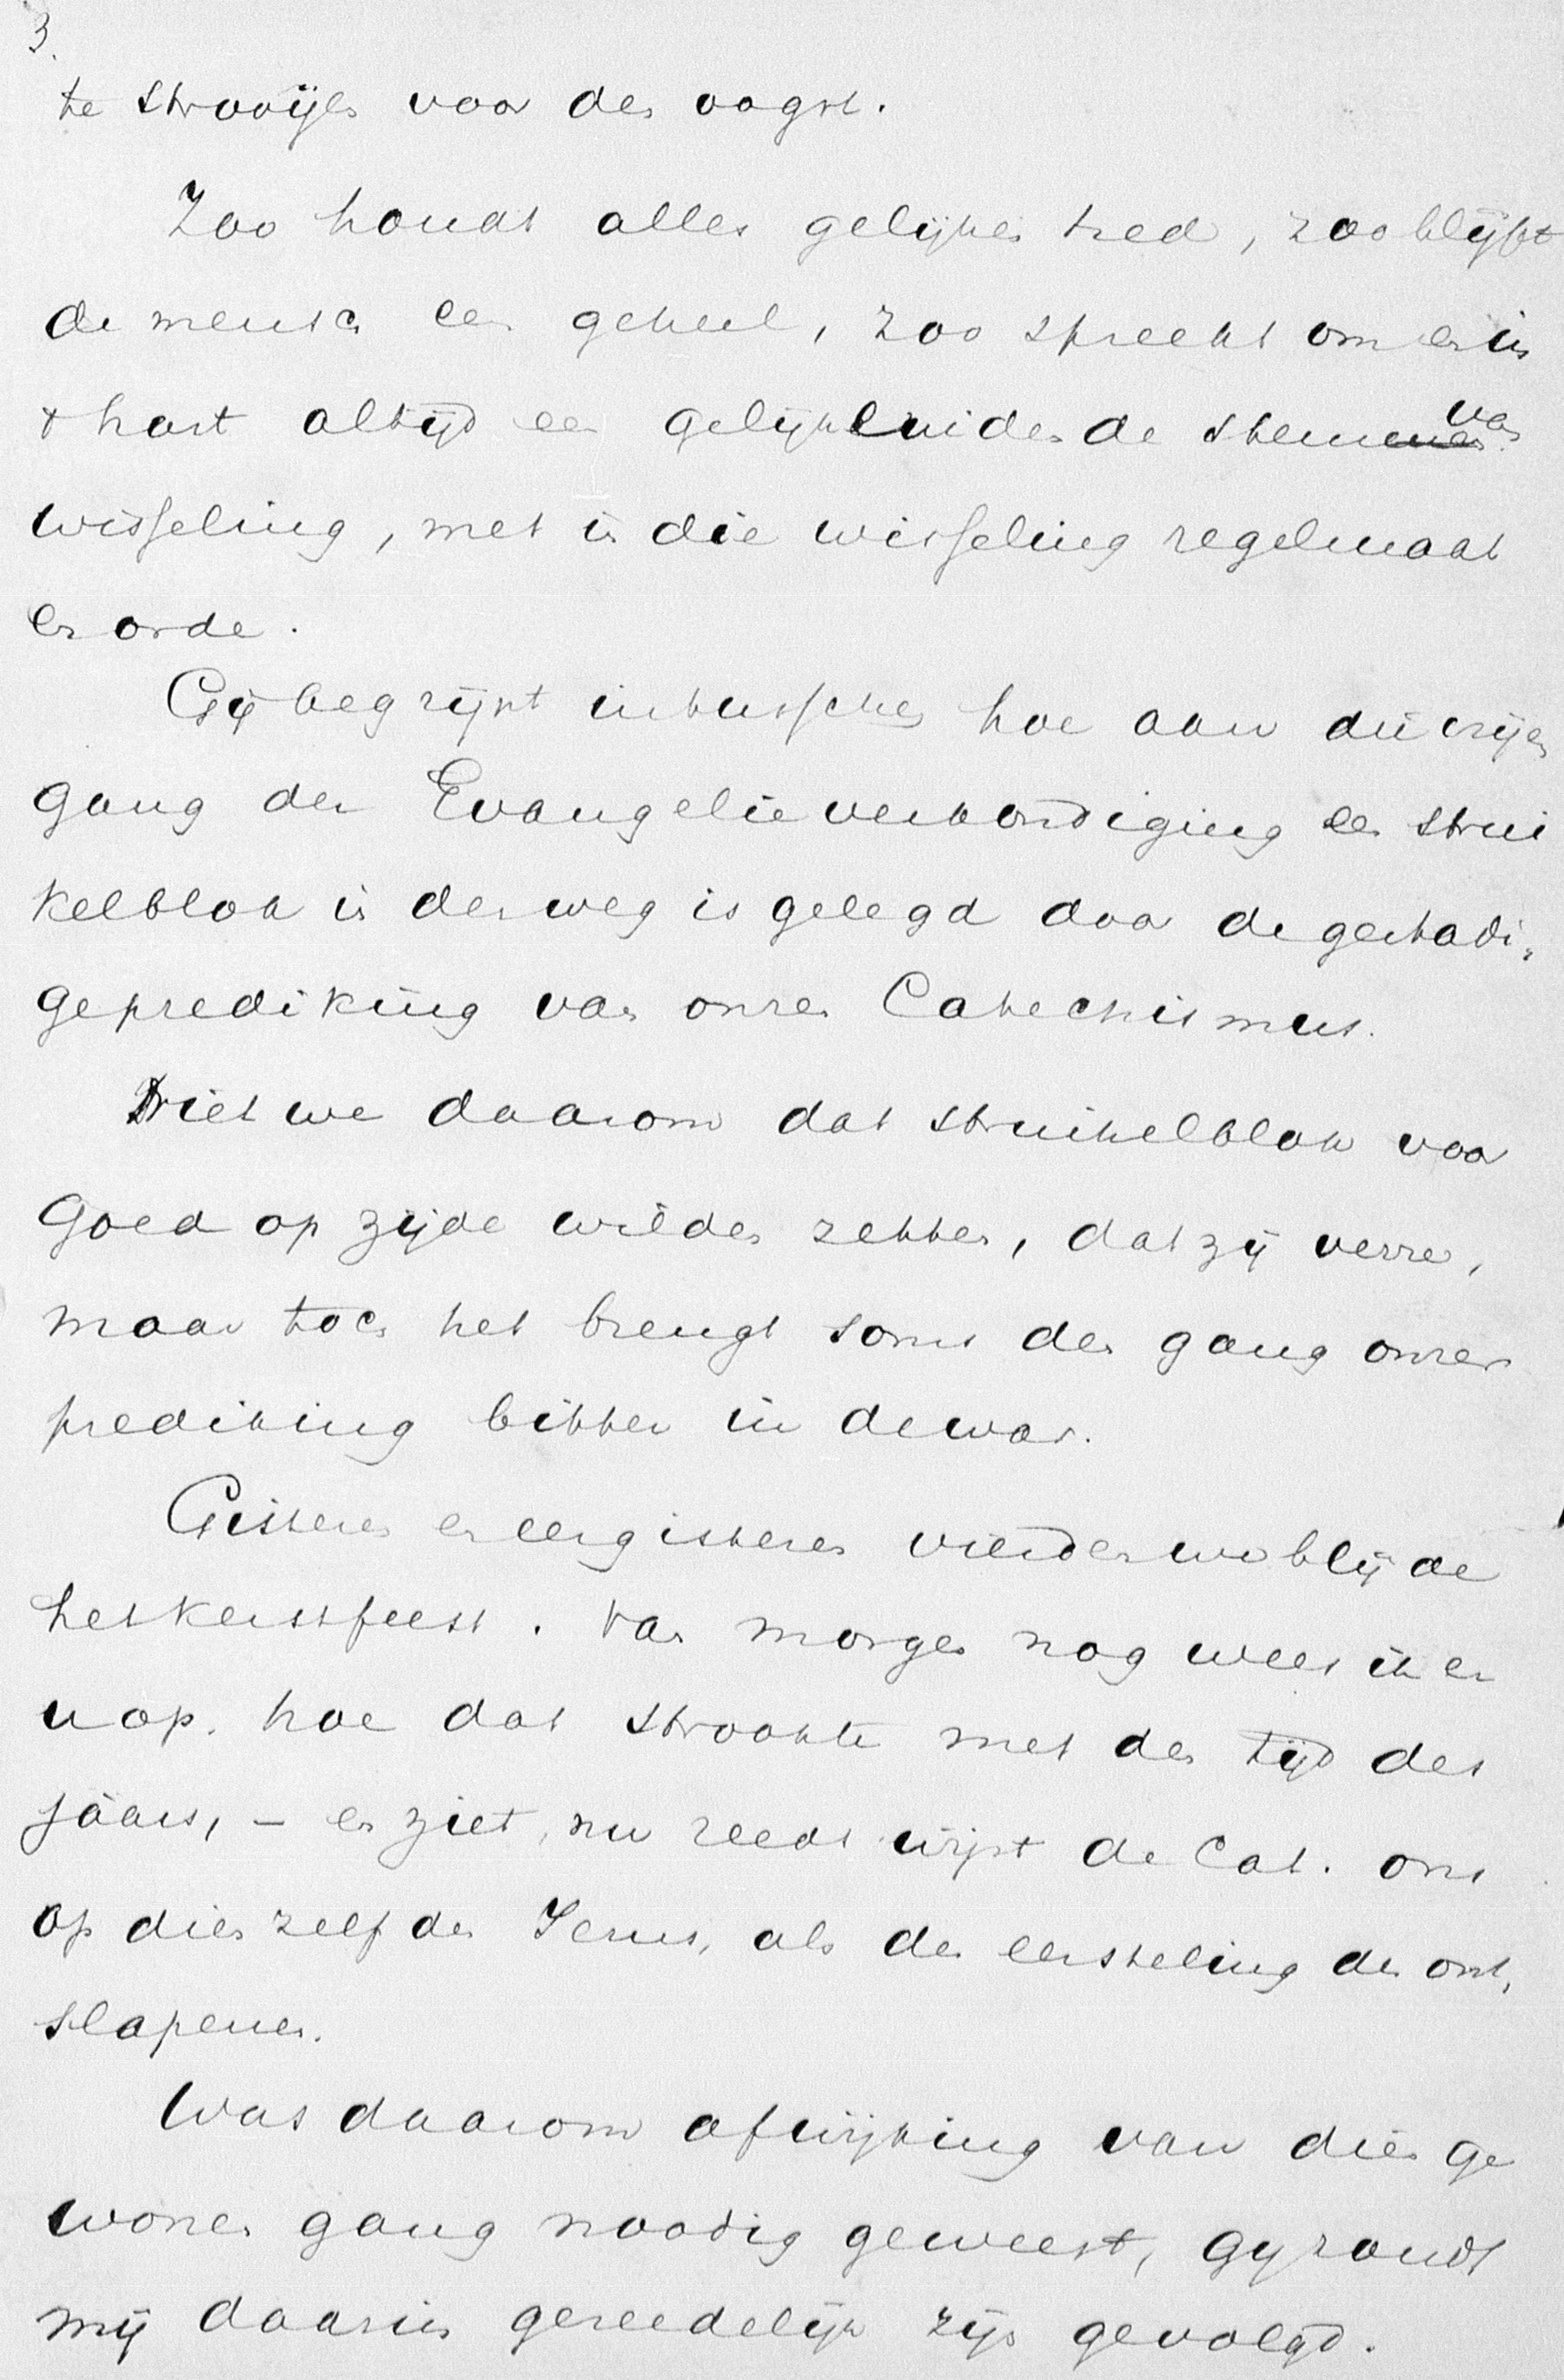 3.
te strooijen voor den oogst.
Zoo houdt alles gelijken tred, zoo blijft
de mensch een geheel, zoo spreekt om en in
't hart altijd een gelijkluidende stem van
wisseling, met in die wisseling regelmaat
en orde.
Gij begrijpt intusschen hoe aan die vrijen
gang der Evangelieverkondiging een strui
kelblok in den weg is gelegd door de gestadi„
ge prediking van onzen Catechismus.
Niet we daarom dat struikelblok voor
goed op zijde wilden zetten, dat zij verre,
maar toch het brengt soms den gang onzer
prediking bitter in de war.
Gisteren en eergisteren vierden we blijde
het kerstfeest. Van morgen nog wees ik er
u op, hoe dat strookte met den tijd des
jaars, – en ziet, nu reeds wijst de Cat. ons
op dien zelfden Jesus, als den eersteling der ont„
slapenen.
Was daarom afwijking van dien ge
wonen gang noodig geweest, gij zoudt
mij daarin gereedelijk zijn gevolgd.